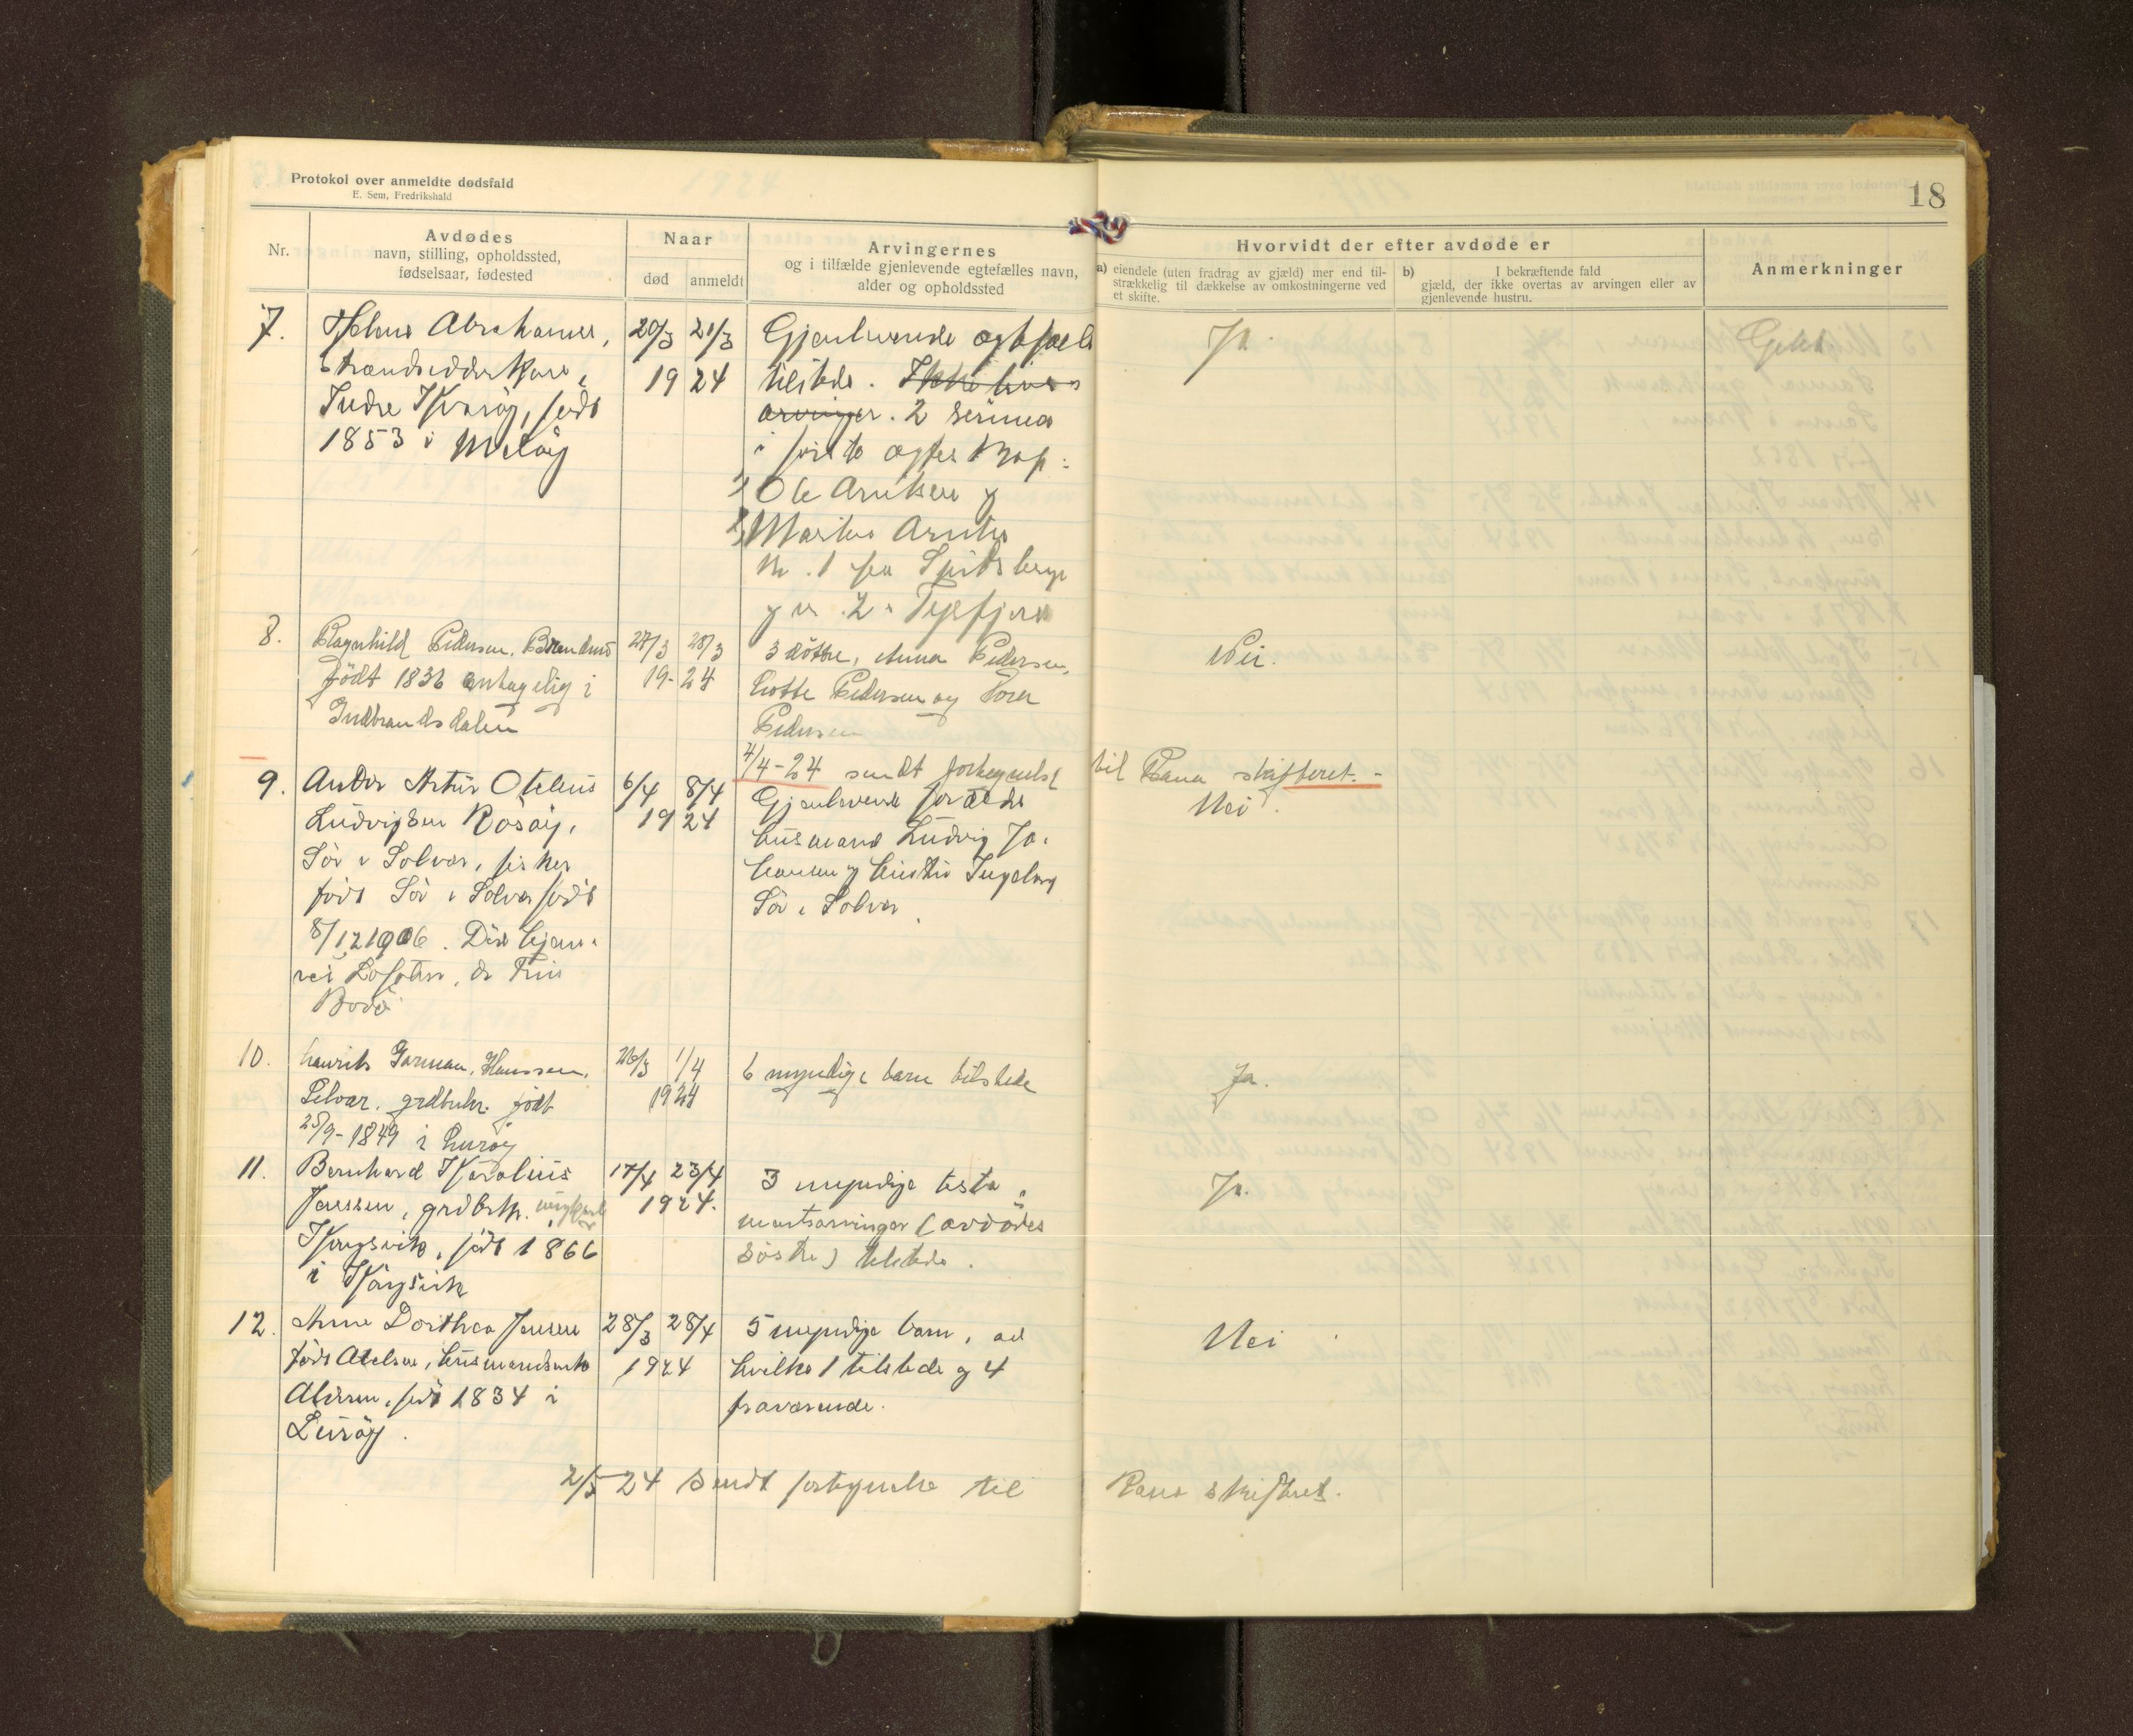 Protokol over anmeldte dødsfald
E. Sem, Fredrikshald
18
Nr.
Avdødes
navn, stilling, opholdssted,
fødselsaar, fødested
Naar
død
anmeldt
Arvingernes
og i tilfælde gjenlevende egtefælles navn,
alder og opholdssted
Hvorvidt der efter avdøde er
a) eiendele (uten fradrag av gjæld) mer end til-
strækkelig til dækkelse av omkostningerne ved
et skifte.
b) I bekræftende fald
gjæld, der ikke overtas av arvingen eller av
gjenlevende hustru.
Anmerkninger
7.
Abrahamsen,
Indre Kvarøy, født
1853 i Meløy
20/3 21/3
1924
Gjenlevende
tilstede. Ikke livs
arvinger. 2 sønner
i første
1) Ole Arntsen og
2) Martin Arntsen
nr. 1 paa Spitsbergen
og nr. 2
Ja.
8.
Ragnhild Pedersen,
født 1836 antagelig i
Gudbrandsdalen
27/3 28/3
19-24
3 døttre, Anna Pedersen,
Lotte Pedersen og Tora
Pedersen
Nei.
4/4-24 sendt fortegnelse til Rana skifteret.-
9.
Artur Otelius
Ludvigsen Rosøy,
Sør i Solvær, fisker
født Sør i Solvær født
8/12 1906. Død
Lofoten,
Bodø
6/4 8/4
1924
Gjenlevende forældre
husmand Ludvig Jo-
hansen og hustru Ingeborg
Sør i Solvær.
Nei.
10.
Henrik Hanssen,
Selvær. grdbruker. født
25/9-1849 i Lurøy
26/3 1/4
1924
6 myndige barn tilstede
Ja.
11.
Bernhard Karolius
Jenssen, grdbrk. ungkarl
født 1866
i
17/4 23/4
1924.
3 myndige testa-
mentsarvinger (avdødes
søstre) tilstede.
Ja.
12.
Anne Dorthea Jensen
født husmandsenke
Aldersun, født 1834 i
Lurøy.
28/3 28/4
1924
5 myndige barn, av
hvilke 1 tilstede og 4
fraværende.
Nei
2/5-24 sendt fortegnelse til Rana skifteret.